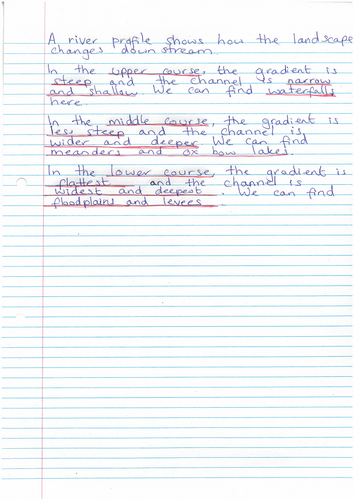 A river profile shows how the landscape
changes downstream
In the upper course, the gradient is
steep and the channel is narrow
and shallow. We can find waterfalls
here.
In the middle course, the gradient is
less steep and the channel is
wider and deeper. We can find
meanders and ox bow lakes.
In the lower course, the gradient is
flattest and the channel is
widest and deepest. We can find
floodplains and levees